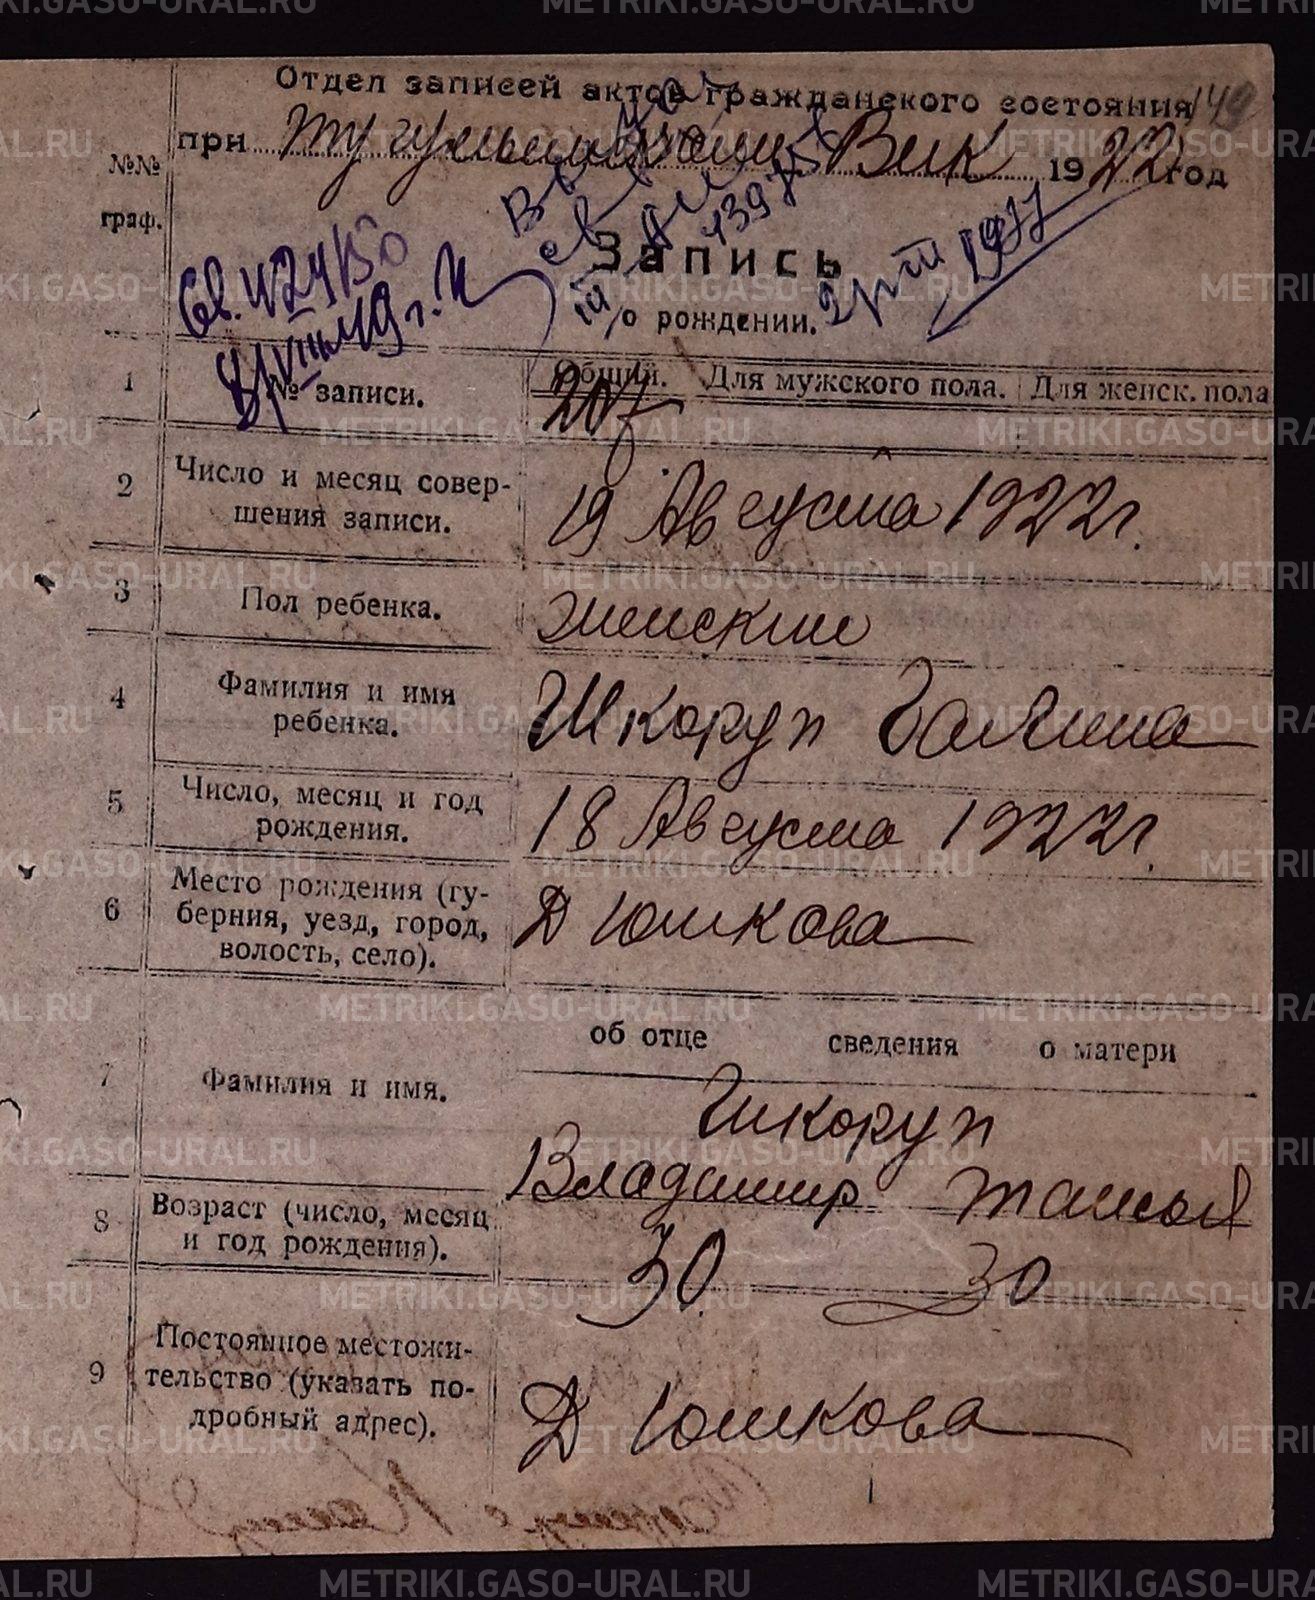 Отдел записей актов гражданского состояния 149
при Тугулымском Вик 1922 год
№№
граф.
Запись
о рождении.
1 № записи. Общий. Для мужского пола. Для женск. пола
207
2 Число и месяц совер-
шения записи.
19 Августа 1922 г.
3 Пол ребенка. Женский
4 Фамилия и имя
ребенка.
Шкоруп Галина
5 Число, месяц и год
рождения.
18 Августа 1922 г.
6 Место рождения (гу-
берния, уезд, город,
волость, село).
Д Юшкова
об отце сведения о матери
7 Фамилия и имя.
Шкоруп
Владимир
8 Возраст (число, месяц
и год рождения).
30. 30
9 Постоянное местожи-
тельство (указать по-
дробный адрес).
Д Юшкова
METRIKI.GASO-URAL.RU